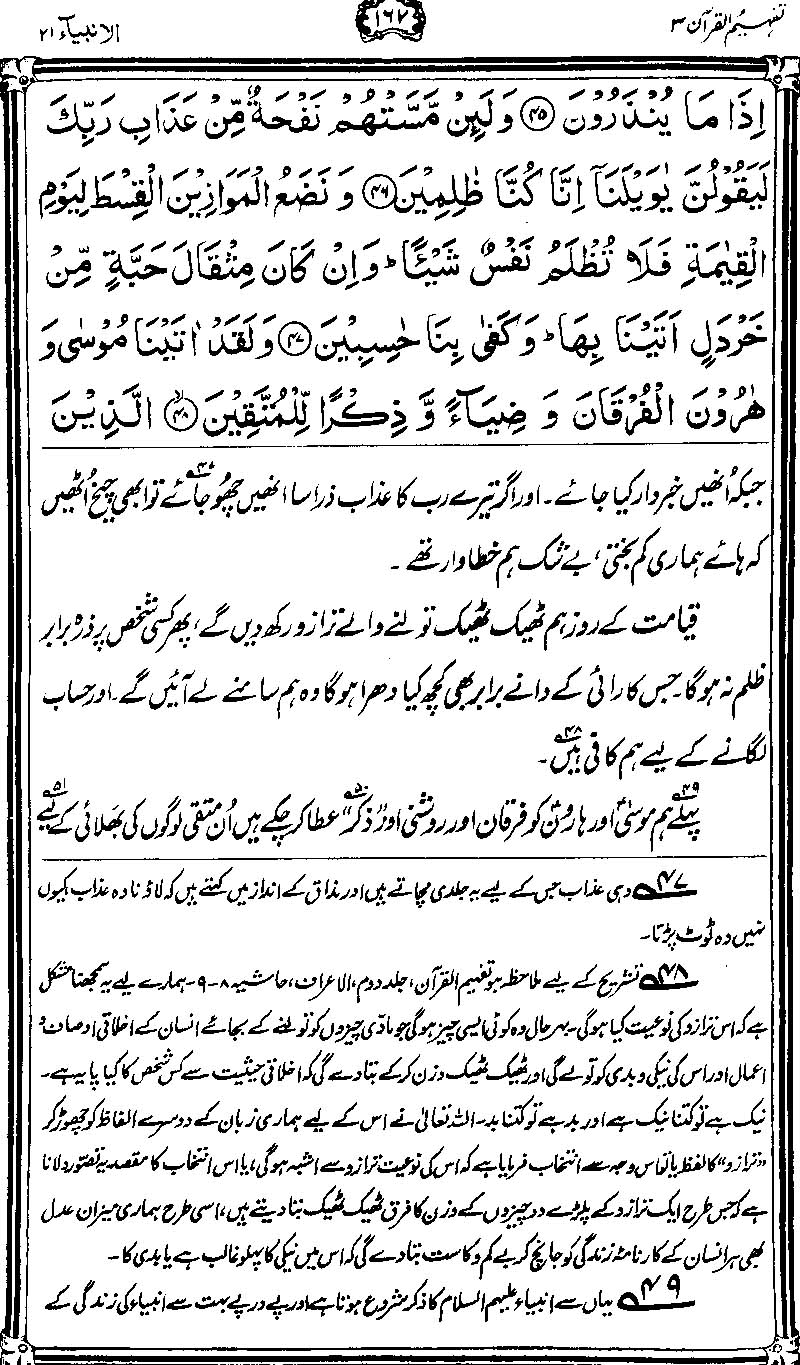 تفہیم القرآن ۳
۱۶۷
الانبیآء ۲۱
اِذَا مَا يُنْذَرُوْنَ ﴿۴۵﴾ وَلَىِٕنْ مَّسَّتْهُمْ نَفْحَةٌ مِّنْ عَذَابِ رَبِّكَ
لَيَقُوْلُنَّ يٰوَيْلَنَاۤ اِنَّا كُنَّا ظٰلِمِيْنَ ﴿۴۶﴾ وَ نَضَعُ الْمَوَازِيْنَ الْقِسْطَ لِيَوْمِ
الْقِيٰمَةِ فَلَا تُظْلَمُ نَفْسٌ شَيْـًٔا ؕ وَاِنْ كَانَ مِثْقَالَ حَبَّةٍ مِّنْ
خَرْدَلٍ اَتَيْنَا بِهَا ؕ وَكَفٰى بِنَا حٰسِبِيْنَ ﴿۴۷﴾ وَلَقَدْ اٰتَيْنَا مُوْسٰى وَ
هٰرُوْنَ الْفُرْقَانَ وَ ضِيَآءً وَّ ذِكْرًا لِّلْمُتَّقِيْنَ ﴿۴۸﴾ الَّذِيْنَ
جبکہ اُنھیں خبردار کیا جائے۔ اور اگر تیرے رب کا عذاب ذرا سا انھیں چھو جائے۴۷ تو ابھی چیخ اُٹھیں
کہ ہائے ہماری کم بختی، بے شک ہم خطاوار تھے۔
قیامت کے روز ہم ٹھیک ٹھیک تولنے والے ترازو رکھ دیں گے، پھر کسی شخص پر ذرہ برابر
ظلم نہ ہوگا۔ جس کا رائی کے دانے برابر بھی کچھ کیا دھرا ہوگا وہ ہم سامنے لے آئیں گے۔ اور حساب
لگانے کے لیے ہم کافی ہیں۴۸۔
پہلے۴۹ ہم موسیٰؑ اور ہارونؑ کو فرقان اور روشنی اور ”ذکر“۵۰ عطا کر چکے ہیں اُن متقی لوگوں کی بھَلائی کے لیے۵۱
۴۷ وہی عذاب جس کے لیے یہ جلدی مچاتے ہیں اور مذاق کے انداز میں کہتے ہیں کہ لاؤ نا وہ عذاب، کیوں
نہیں وہ ٹوٹ پڑتا۔
۴۸ تشریح کے لیے ملاحظہ ہو تفہیم القرآن، جلد دوم، الاعراف، حاشیہ ۸-۹۔ ہمارے لیے یہ سمجھنا مشکل
ہے کہ اس ترازو کی نوعیت کیا ہوگی۔ بہرحال وہ کوئی ایسی چیز ہوگی جو مادّی چیزوں کو تولنے کے بجائے انسان کے اخلاقی اوصاف و
اعمال اور اس کی نیکی و بدی کو تولے گی اور ٹھیک ٹھیک وزن کر کے بتا دے گی کہ اخلاقی حیثیت سے کس شخص کا کیا پایہ ہے۔
نیک ہے تو کتنا نیک ہے اور بد ہے تو کتنا بد۔ اللہ تعالیٰ نے اس کے لیے ہماری زبان کے دوسرے الفاظ کو چھوڑ کر
”ترازو“ کا لفظ یا تو اس وجہ سے انتخاب فرمایا ہے کہ اس کی نوعیت ترازو سے اشبہ ہوگی، یا اس انتخاب کا مقصد یہ تصور دلانا
ہے کہ جس طرح ایک ترازو کے پلڑے دو چیزوں کے وزن کا فرق ٹھیک ٹھیک بتا دیتے ہیں، اسی طرح ہماری میزان عدل
بھی ہر انسان کے کارنامۂ زندگی کو جانچ کر بے کم و کاست بتا دے گی کہ اس میں نیکی کا پہلو غالب ہے یا بدی کا۔
۴۹ یہاں سے انبیاء علیہم السلام کا ذکر شروع ہوتا ہے اور پے در پے بہت سے انبیاء کی زندگی کے